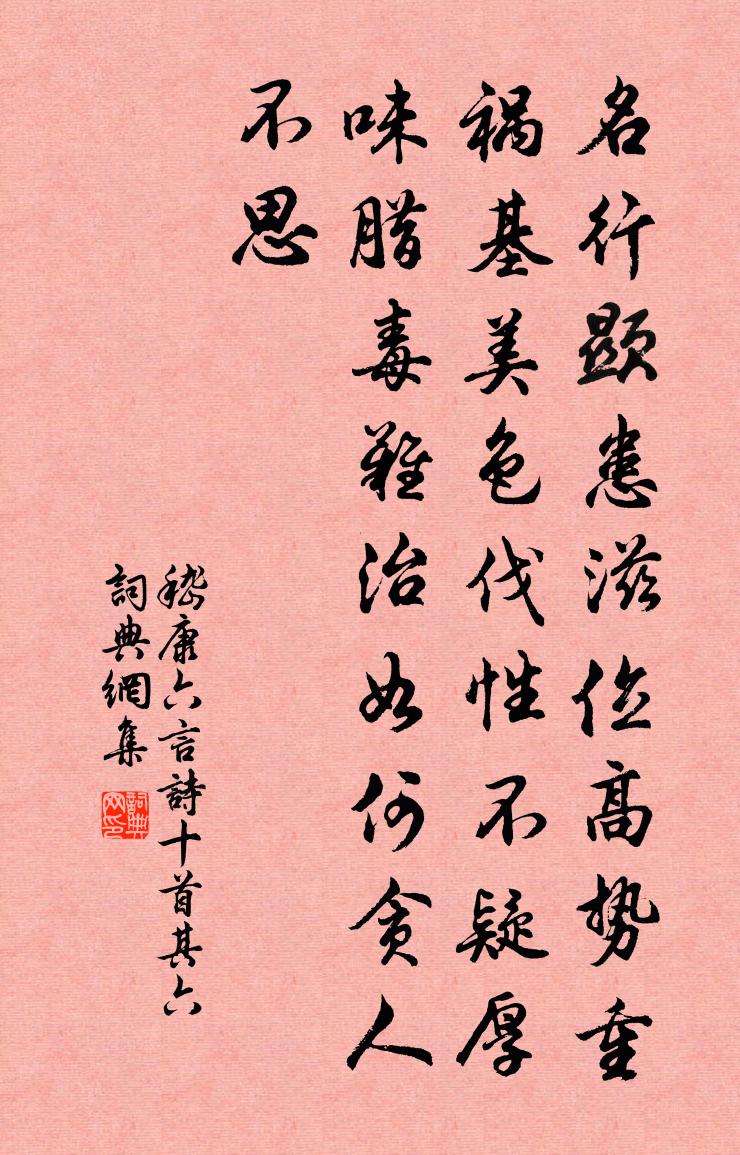 名行顕患滋位高势重
祸基美色伐性不疑厚
味腊毒難治如何贪人
不思
嵇康六言詩十首其六
詞典網集
詞典网印